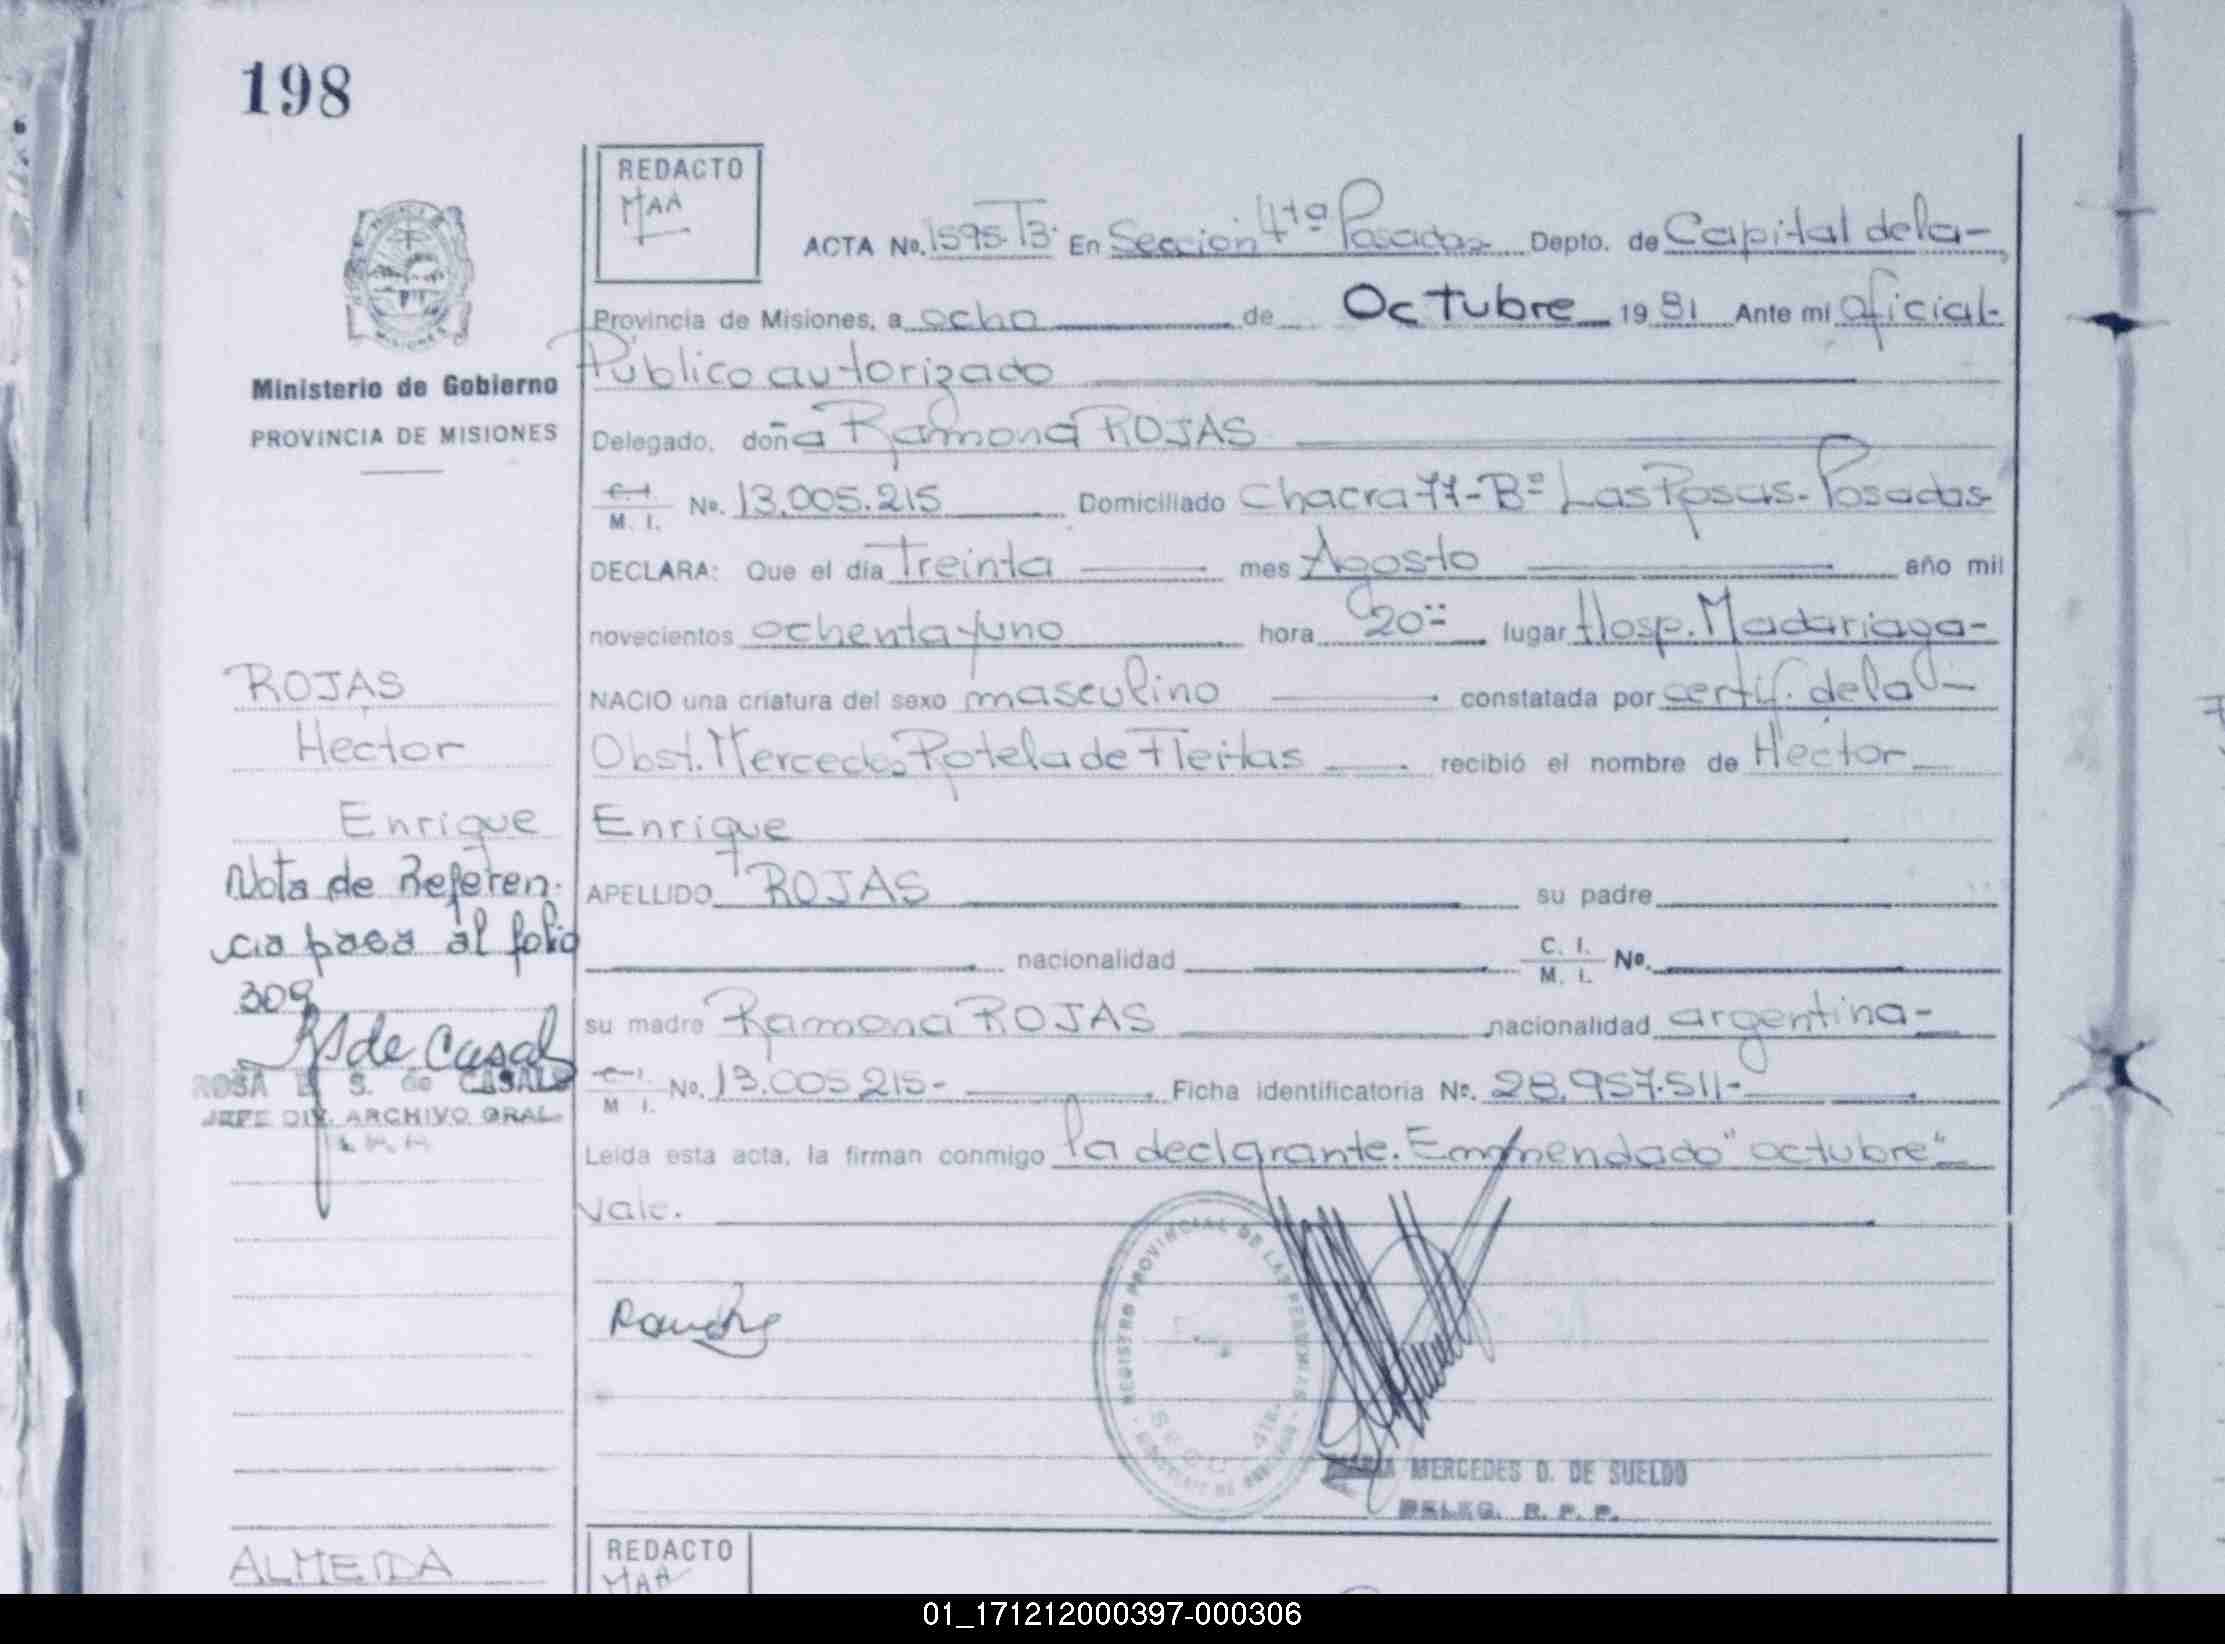 198
REDACTO
MAA
ACTA No. 1595-T3- En Sección 4ta Posadas Depto. de Capital de la-
Provincia de Misiones, a ocho de Octubre 1981 Ante mi Oficial-
Público autorizado
Ministerio de Gobierno
PROVINCIA DE MISIONES
Delegado, doña Ramona ROJAS
C. I. M. I. No. 13.005.215 Domiciliado Chacra 77-Bº Las Rosas-Posadas-
DECLARA: Que el día Treinta mes Agosto año mil
novecientos ochenta y uno hora 20 lugar Hosp. Madariaga-
NACIO una criatura del sexo masculino constatada por certif. de la-
Obst. Mercedes Potela de Fleitas recibió el nombre de Héctor
Enrique
APELLIDO ROJAS su padre
nacionalidad C. I. M. I. No.
su madre Ramona ROJAS nacionalidad argentina-
C. I. M. I. No. 13.005.215- Ficha identificatoria No. 28.957.511-
Leída esta acta, la firman conmigo la declarante. Enmendado "octubre"
vale.
ROJAS
Héctor
Enrique
Nota de Referen-
cia pasa al folio
309
RS de Casal
ROSA E. S. de CASAL
JEFE DIV. ARCHIVO GRAL.
REGISTRO PROVINCIAL DE LAS PERSONAS
SECC. 4ta.
MARIA MERCEDES D. DE SUELDO
DELEG. R. P. P.
ALMEIDA
REDACTO
MAA
01_171212000397-000306